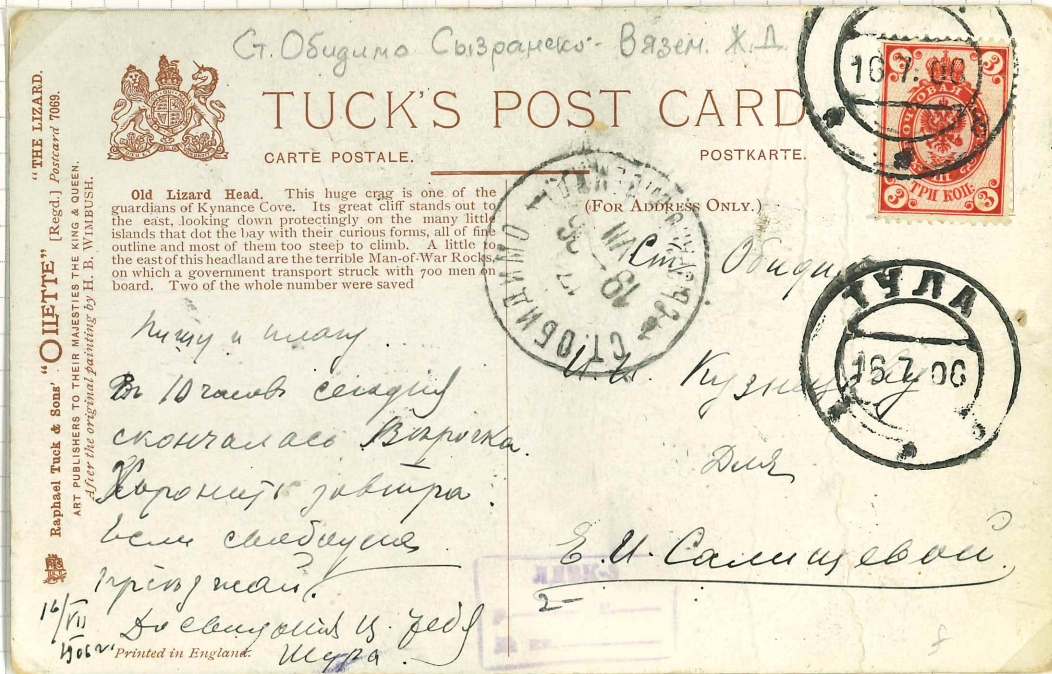 Ст. Обидимо Сызранско-Вязем. Ж.Д.
TUCK'S POST CARD
CARTE POSTALE.
POSTKARTE.
(FOR ADDRESS ONLY.)
"THE LIZARD.
Raphael Tuck & Sons' "OILETTE" [Regd.] Postcard 7069.
ART PUBLISHERS TO THEIR MAJESTIES THE KING & QUEEN.
After the original painting by H. B. WIMBUSH.
Old Lizard Head. This huge crag is one of the
guardians of Kynance Cove. Its great cliff stands out to
the east, looking down protectingly on the many little
islands that dot the bay with their curious forms, all of fine
outline and most of them too steep to climb. A little to
the east of this headland are the terrible Man-of-War Rocks,
on which a government transport struck with 700 men on
board. Two of the whole number were saved
Пишу и плачу
Въ 10 часовъ сегодня
скончалась Вѣрочка.
Хоронить завтра.
Если свободна
пріѣзжай.
До свиданія ц. тебя
Шура.
16/VII
1906 г.
Printed in England.
16.7.06
ПОЧТОВАЯ
3
3
3
3
ТРИ КОП.
СТ. ОБИДИМО
19 VII 06
ТУЛА
16.7.06
Ст. Обидимо
И. И. Кузнецову
Для
Е. И. Салищевой
2-